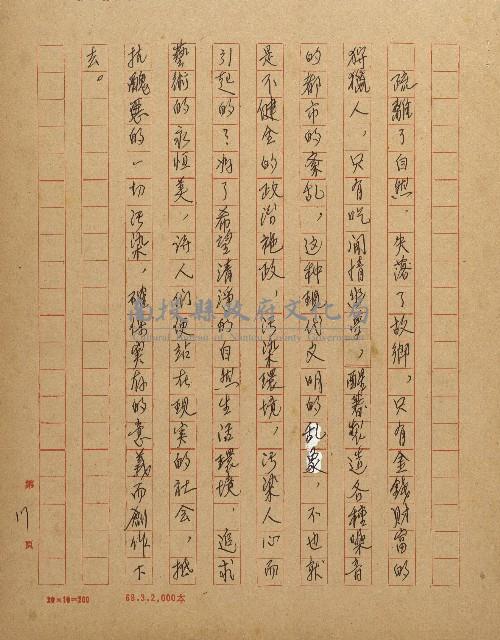 疏離了自然,失落了故鄉,只有金錢財富的
狩獵人,只有吃閒情逸,醒著製造各種噪音
的都市的紊乱,这种現代文明的乱象,不也就
是不健全的政治施政,污染環境,污染人心而
引起的?為了希望清淨的自然生活環境,追求
藝術的永恒美,詩人們便站在現实的社会,抵
抗醜惡的一切污染,確保实存的意義而創作下
去。
第17頁
20×10=200
68.3.2,000本
南投縣政府文化局
Cultural Bureau of Nantou County Government